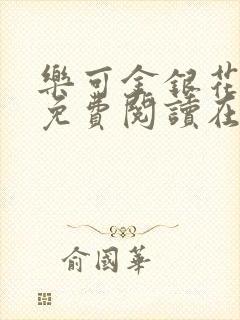 樂可金銀花
免費閱讀在
俞國華